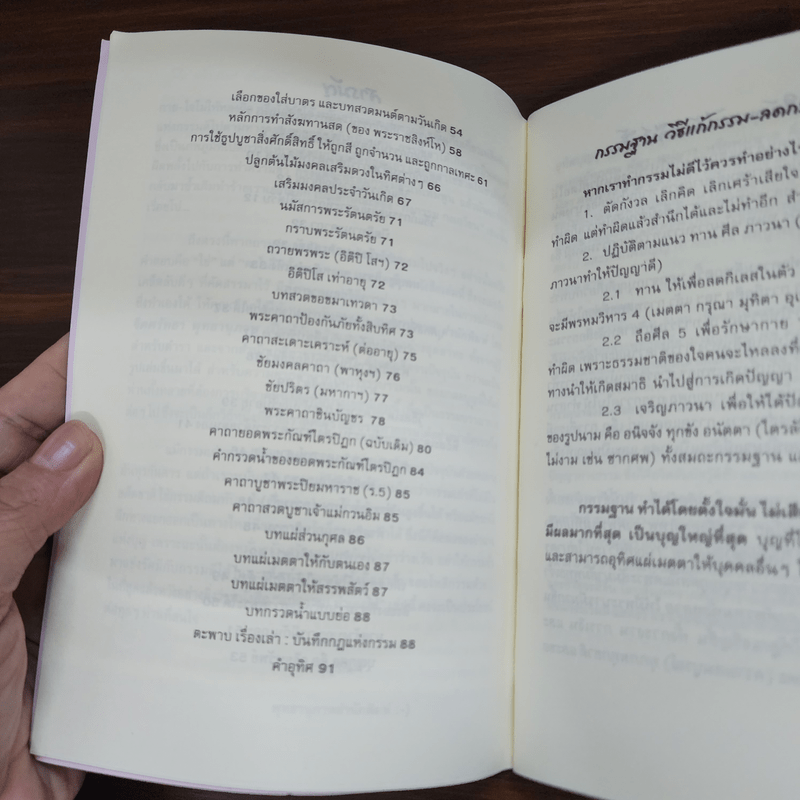 เลือกของใส่บาตร และบทสวดมนต์ตามวันเกิด 54
หลักการทำสังฆทานสด (ของ พระราชสิงห์โห) 58
การใช้ธูปบูชาสิ่งศักดิ์สิทธิ์ ให้ถูกสี ถูกจำนวน และถูกกาลเทศะ 61
ปลูกต้นไม้มงคลเสริมดวงในทิศต่างๆ 66
เสริมมงคลประจำวันเกิด 67
นมัสการพระรัตนตรัย 71
กราบพระรัตนตรัย 71
ถวายพรพระ (อิติปิ โสฯ) 72
อิติปิโส เท่าอายุ 72
บทสวดขอขมาเทวดา 73
พระคาถาป้องกันภัยทั้งสิบทิศ 73
คาถาสะเดาะเคราะห์ (ต่ออายุ) 75
ชัยมงคลคาถา (พาหุงฯ) 76
ชัยปริตร (มหากาฯ) 77
พระคาถาชินบัญชร 78
คาถายอดพระกัณฑ์ไตรปิฎก (ฉบับเดิม) 80
คำกรวดน้ำของยอดพระกัณฑ์ไตรปิฎก 84
คาถาบูชาพระปิยมหาราช (ร.5) 85
คาถาสวดบูชาเจ้าแม่กวนอิม 85
บทแผ่ส่วนกุศล 86
บทแผ่เมตตาให้กับตนเอง 87
บทแผ่เมตตาให้สรรพสัตว์ 87
บทกรวดน้ำแบบย่อ 88
ตะพาบ เรื่องเล่า : บันทึกกฎแห่งกรรม 88
คำอุทิศ 91
กรรมฐาน วิธีแก้กรรม-ลดก
หากเราทำกรรมไม่ดีไว้ควรทำอย่างไ
1. ตัดกังวล เลิกคิด เลิกเศร้าเสียใจ
ทำผิด แต่ทำผิดแล้วสำนึกได้และไม่ทำอีก
2. ปฏิบัติตามแนว ทาน ศีล ภาวนา
ภาวนาทำให้ปัญญาดี)
2.1 ทาน ให้เพื่อลดกิเลสในตัว
จะมีพรหมวิหาร 4 (เมตตา กรุณา มุทิตา
2.2 ถือศีล 5 เพื่อรักษากาย
ทำผิด เพราะธรรมชาติของใจคนจะไหลลงที่
ทางนำให้เกิดสมาธิ นำไปสู่การเกิดปัญญา
2.3 เจริญภาวนา เพื่อให้ได้ปั
ของรูปนาม คือ อนิจจัง ทุกขัง อนัตตา (ไตรลั
ไม่งาม เช่น ซากศพ) ทั้งสมถะกรรมฐาน
กรรมฐาน ทำได้โดยตั้งใจมั่น ไม่เสี
มีผลมากที่สุด เป็นบุญใหญ่ที่สุด บุญที่ไ
และสามารถอุทิศแผ่เมตตาให้บุคคลอื่นๆ